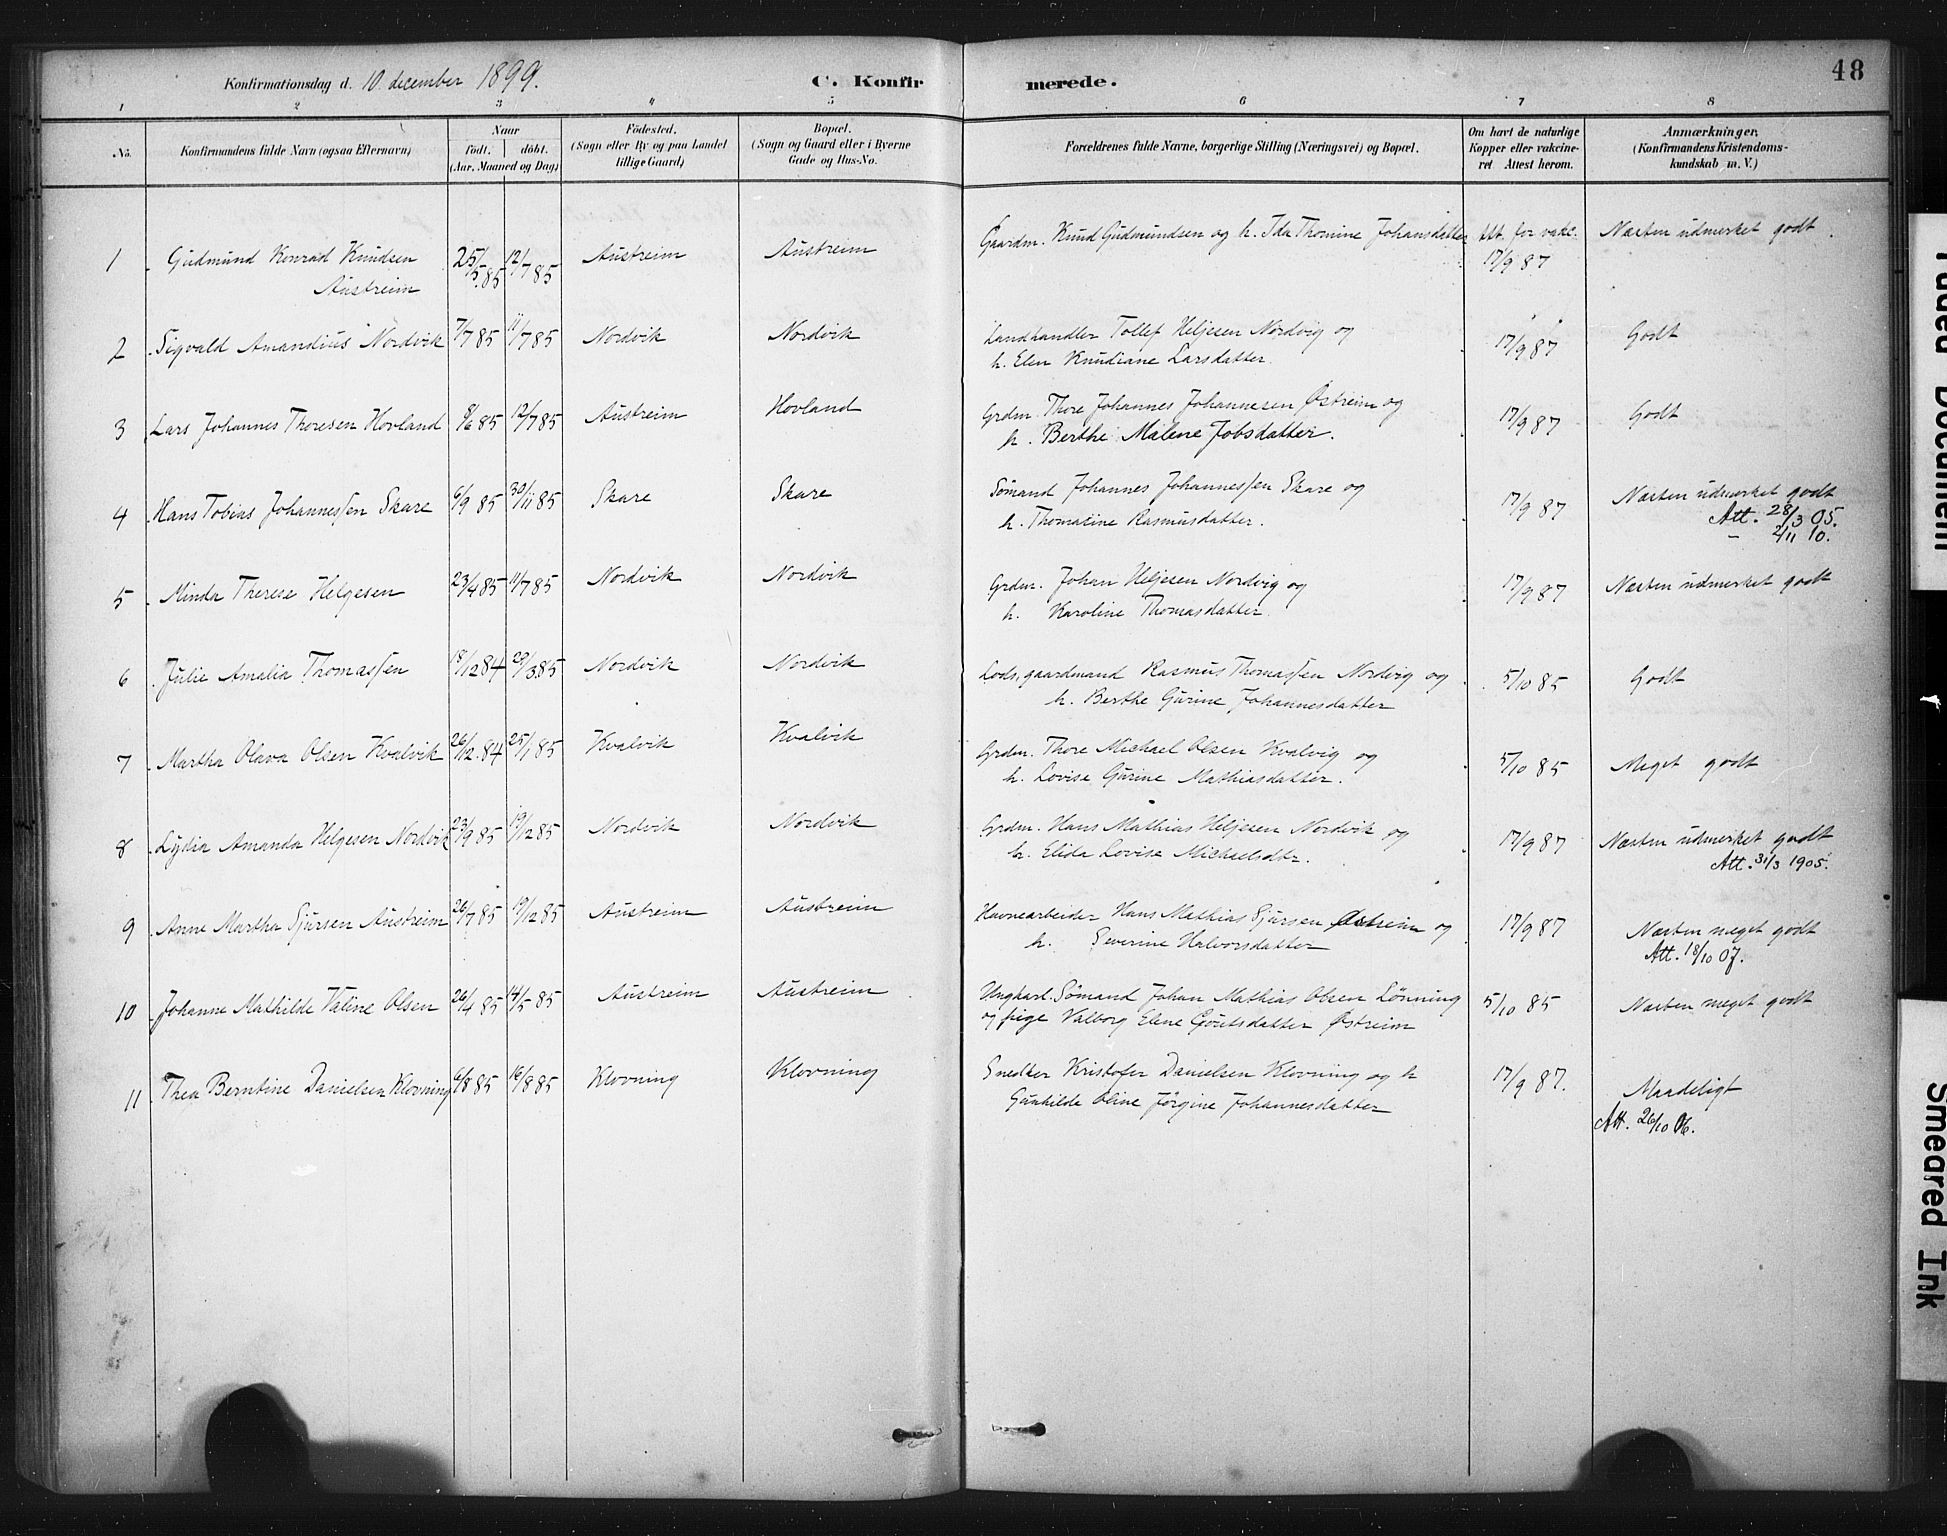 48
Konfirmationsdag d. 10. december 1899.
C. Konfirmerede.
1 2 3 4 5 6 7 8
No.
Konfirmandens fulde Navn (ogsaa Efternavn)
Naar
födt. döbt.
(Aar, Maaned og Dag)
Födested.
(Sogn eller By og paa Landet
tillige Gaard)
Bopæl.
(Sogn og Gaard eller i Byerne
Gade og Hus-No.
Forældrenes fulde Navne, borgerlige Stilling (Næringsvei) og Bopæl.
Om havt de naturlige
Kopper eller vakcine-
ret. Attest herom.
Anmærkninger.
(Konfirmandens Kristendoms-
kundskab m. V.)
1 Gudmund Konrad Knudsen 25/5 85 12/7 85 Austreim Austreim Gaardm. Knud Gudmundsen og h. Ida Thomine Johansdatter Att. for vakc. Næsten udmerket godt
Austreim 17/9 87
2 Sigvald Amandius Nordvik 7/7 85 11/7 85 Nordvik Nordvik Landhandler Tollef Heljesen Nordvig og 17/9 87 Godt
h. Elen Knudiane Larsdatter
3 Lars Johannes Thoresen Hovland 8/6 85 12/7 85 Austreim Hovland Grdm. Thore Johannes Johannesen Østreim og 17/9 87 Godt
h. Berthe Malene Jobsdatter.
4 Hans Tobias Johannessen Skare 6/9 85 30/11 85 Skare Skare Sömand Johannes Johannessen Skare og 17/9 87 Næsten udmerket godt
h. Thomasine Rasmusdatter. Att. 28/3 05.
– 2/11 10.
5 Minda Therese Helgesen 23/4 85 11/7 85 Nordvik Nordvik Grdm. Johan Heljesen Nordvig og 17/9 87 Næsten udmerket godt
h. Karoline Thomasdatter
6 Julie Amalia Thomassen 18/12 84 29/3 85 Nordvik Nordvik Lods, gaardmand Rasmus Thomassen Nordvig og 5/10 85 Godt
h. Berthe Gurine Johannesdatter
7 Martha Olava Olsen Kvalvik 26/12 84 25/1 85 Kvalvik Kvalvik Grdm. Thore Michael Olsen Kvalvig og 5/10 85 Meget godt
h. Lovise Gurine Mathiasdatter.
8 Lydia Amanda Helgesen Nordvik 23/9 85 19/12 85 Nordvik Nordvik Grdm. Hans Mathias Heljesen Nordvik og 17/9 87 Næsten udmerket godt
h. Elida Lovise Michaelsdtr. Att. 31/3 1905.
9 Anne Martha Sjursen Austreim 26/7 85 19/12 85 Austreim Austreim Havnearbeider Hans Mathias Sjursen Østreim og 17/9 87 Næsten meget godt
h. Severine Halvorsdatter Att. 18/10 07.
10 Johanne Mathilde Valine Olsen 26/4 85 14/5 85 Austreim Austreim Ungkarl. Sömand Johan Mathias Olsen Lönning 5/10 85 Næsten meget godt
og pige Valborg Elene Goutsdatter Østreim
11 Thea Berntine Danielsen Klovning 6/8 85 16/8 85 Klovning Klovning Snedker Kristofer Danielsen Klovning og h 17/9 87. Maadeligt
Gunhilde Oline Jörgine Johannesdatter Att. 26/10 06.
Faded Document
Smeared Ink